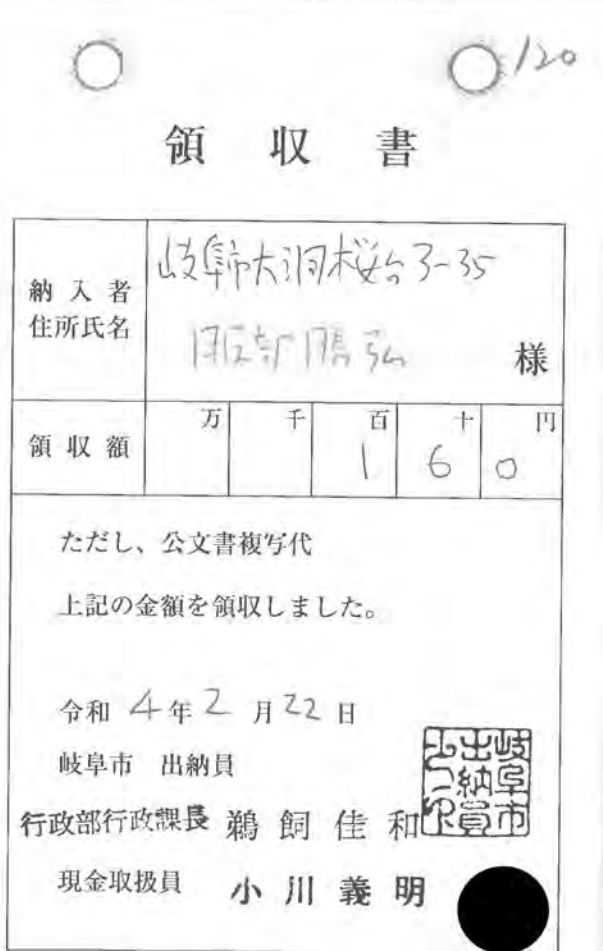 120
領収書
納入者
住所氏名
岐阜市大洞桜台3-35
服部勝弘 様
領収額 万 千 百 十 円
1 6 0
ただし、公文書複写代
上記の金額を領収しました。
令和 4年 2月 22日
岐阜市 出納員
行政部行政課長 鵜飼佳和
現金取扱員 小川義明
岐阜市
出納員